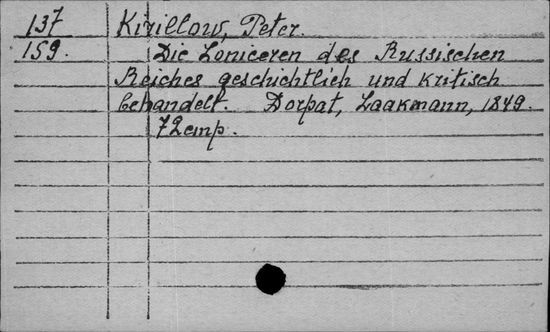 137 Kirillow, Peter.
159. Die Loniceren des Russischen
Reiches geschichtlich und kritisch
behandelt. Dorpat, Laakmann, 1849.
72 стр.